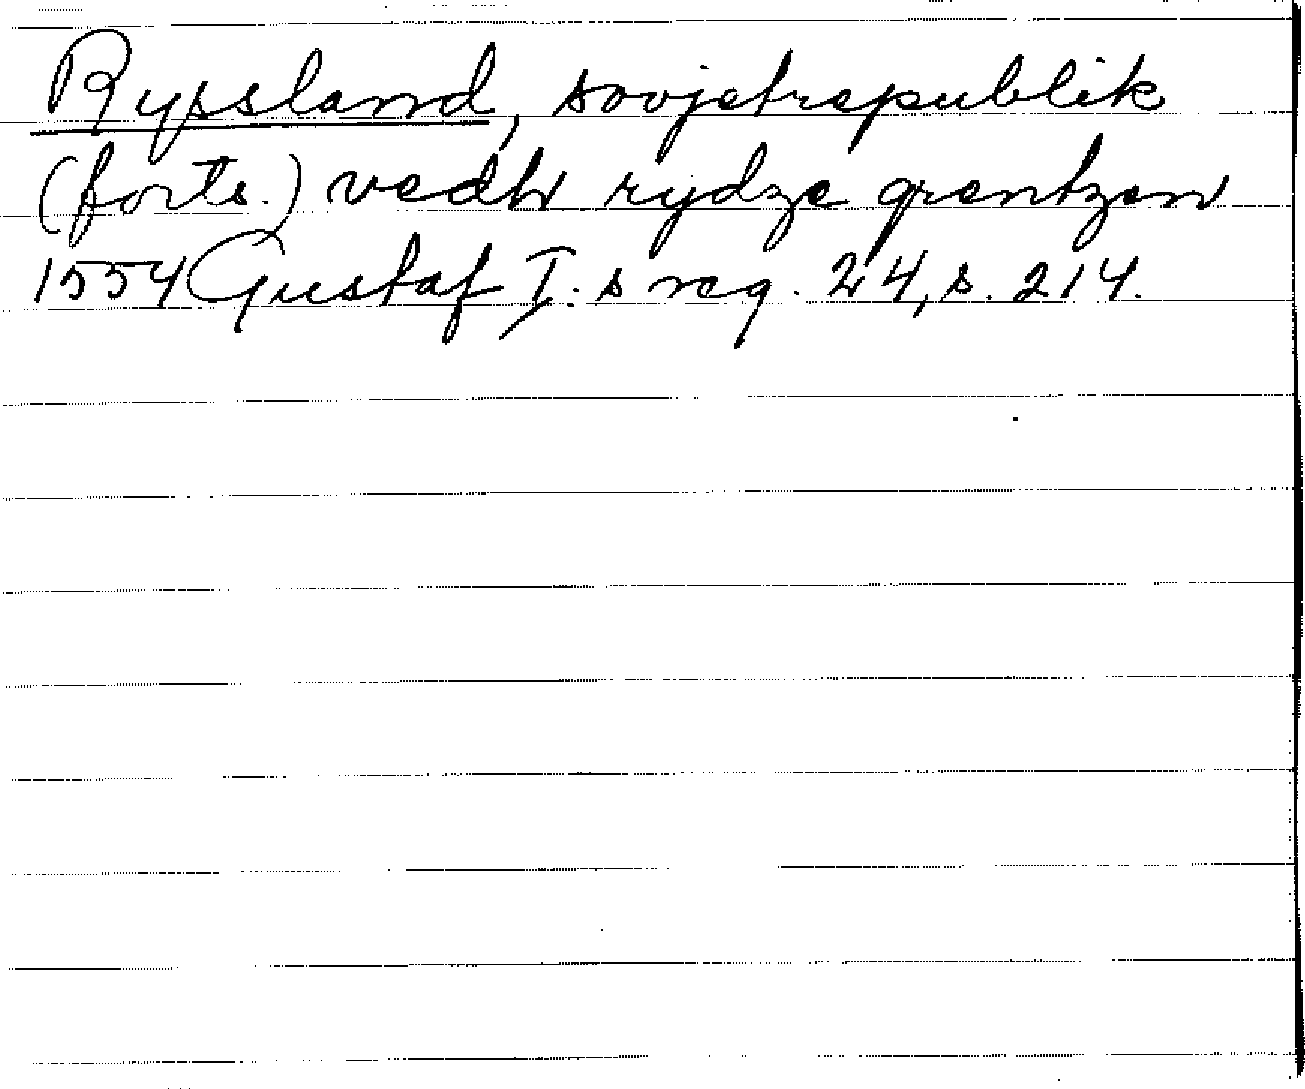 Ryssland, sovjetrepublik
(forts.) vedh rydze grentzen
1554 Gustaf I:s reg. 24, s. 214.